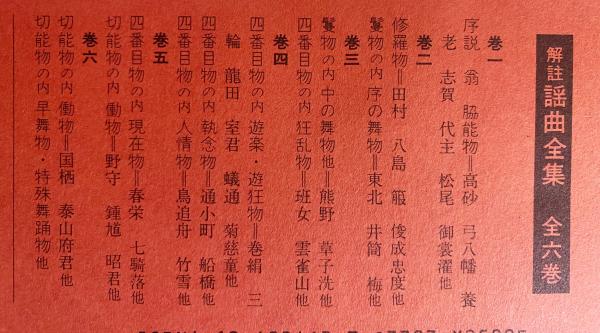 解註 謡曲全集 全六巻
巻一
序説 翁 脇能物＝高砂 弓八幡 養
老 志賀 代主 松尾 御裳濯他
巻二
修羅物＝田村 八島 箙 俊成忠度他
鬘物の内 序の舞物＝東北 井筒 梅他
巻三
鬘物の内 中の舞物他＝熊野 草子洗他
四番目物の内 狂乱物＝班女 雲雀山他
巻四
四番目物の内 遊楽・遊狂物＝巻絹 三
輪 龍田 室君 蟻通 菊慈童他
四番目物の内 執念物＝通小町 船橋他
四番目物の内 人情物＝鳥追舟 竹雪他
巻五
四番目物の内 現在物＝春栄 七騎落他
切能物の内 働物＝野守 鍾馗 昭君他
巻六
切能物の内 働物＝国栖 泰山府君他
切能物の内 早舞物・特殊舞踊物他